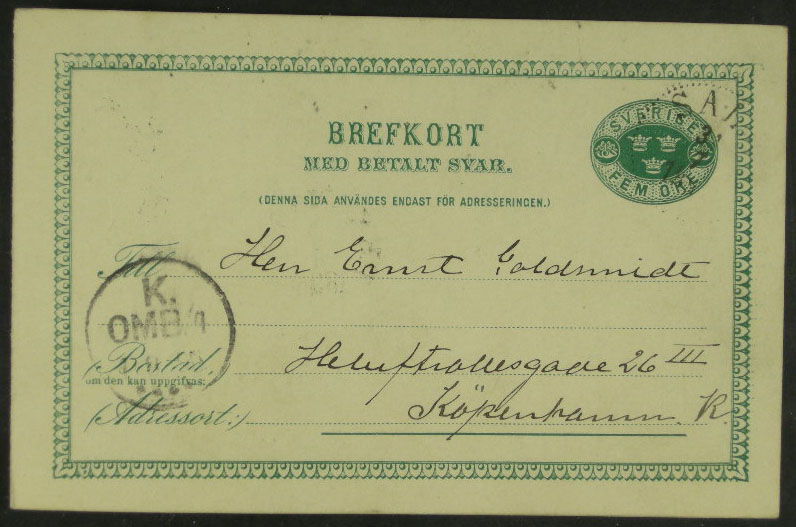 SVERIGE
FEM ÖRE
BREFKORT
MED BETALT SVAR.
(DENNA SIDA ANVÄNDES ENDAST FÖR ADRESSERINGEN.)
Till Herr Ernst Goldsmidt
K.
OMB. 4
(Bostad, 26 III
om den kan uppgifvas:
(Adressort:) Köpenhamn K.